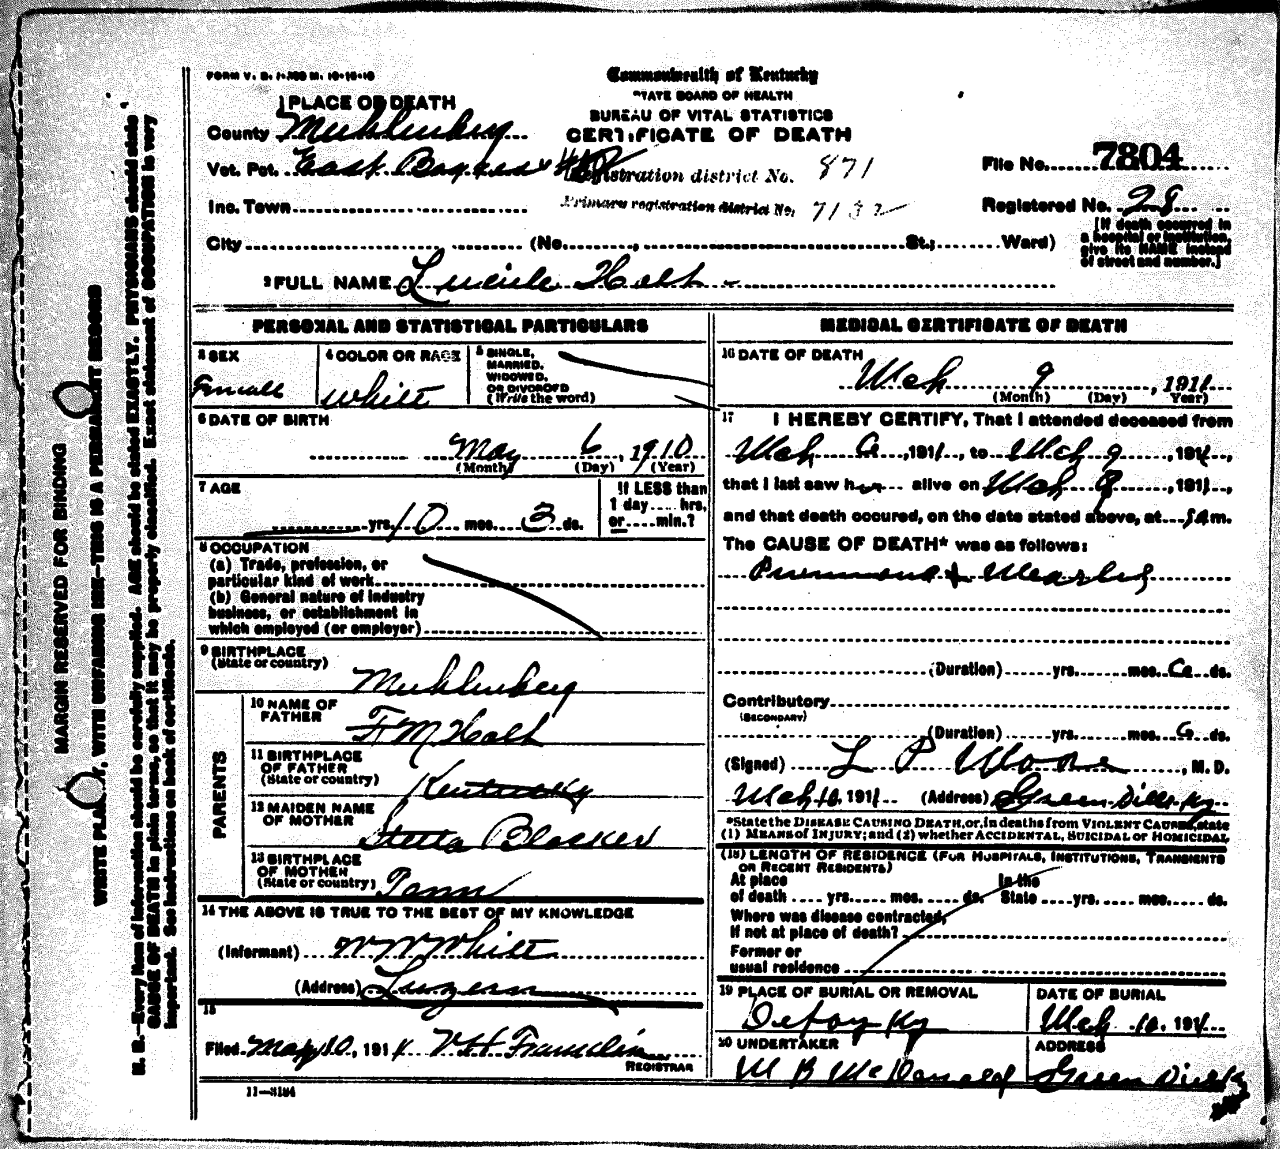 FORM V. S. 1-
Commonwealth of Kentucky
STATE BOARD OF HEALTH
BUREAU OF VITAL STATISTICS
CERTIFICATE OF DEATH
1 PLACE OF DEATH
County Muhlenberg
Vot. Pct. East
Registration district No. 871
File No. 7804
Inc. Town
Primary registration district No. 7132
Registered No. 28
City (No. , St.; Ward)
[If death occurred in a hospital or institution, give its NAME instead of street and number.]
2 FULL NAME Lucile Holt
PERSONAL AND STATISTICAL PARTICULARS
3 SEX
Female
4 COLOR OR RACE
White
5 SINGLE, MARRIED, WIDOWED, OR DIVORCED (Write the word)
6 DATE OF BIRTH
May 6, 1910
(Month) (Day) (Year)
7 AGE
yrs. 10 mos. 3 ds.
If LESS than 1 day .... hrs. or ..... min.?
8 OCCUPATION
(a) Trade, profession, or
particular kind of work
(b) General nature of industry
business, or establishment in
which employed (or employer)
9 BIRTHPLACE
(State or country)
Muhlenberg
PARENTS
10 NAME OF FATHER
F M Holt
11 BIRTHPLACE OF FATHER
(State or country)
Kentucky
12 MAIDEN NAME OF MOTHER
Stella
13 BIRTHPLACE OF MOTHER
(State or country)
Tenn
14 THE ABOVE IS TRUE TO THE BEST OF MY KNOWLEDGE
(Informant) W W White
(Address) Luzern
15
Filed May 10, 1911 V H Franklin
REGISTRAR
11-3184
MEDICAL CERTIFICATE OF DEATH
16 DATE OF DEATH
Mch 9, 1911
(Month) (Day) Year)
17 I HEREBY CERTIFY, That I attended deceased from
Mch 6, 1911, to Mch 9, 1911,
that I last saw her alive on Mch 9, 1911,
and that death occured, on the date stated above, at m.
The CAUSE OF DEATH* was as follows:
(Duration) yrs. mos. 6 ds.
Contributory
(SECONDARY)
(Duration) yrs. mos. 6 ds.
(Signed) L P Moore, M. D.
Mch 10, 1911 (Address) Greenville Ky
*State the DISEASE CAUSING DEATH, or, in deaths from VIOLENT CAUSES, state
(1) MEANS of INJURY; and (2) whether ACCIDENTAL, SUICIDAL or HOMICIDAL
(18) LENGTH OF RESIDENCE (FOR HOSPITALS, INSTITUTIONS, TRANSIENTS
OR RECENT RESIDENTS)
At place of death .... yrs. .... mos. .... ds. In the State .... yrs. .... mos. .... ds.
Where was disease contracted,
If not at place of death?
Former or
usual residence
19 PLACE OF BURIAL OR REMOVAL
Depoy Ky
DATE OF BURIAL
Mch 10, 1911
20 UNDERTAKER
M B McDonald
ADDRESS
Greenville Ky
MARGIN RESERVED FOR BINDING
WRITE PLAINLY, WITH UNFADING INK—THIS IS A PERMANENT RECORD
N. B.—Every item of information should be carefully supplied. AGE should be stated EXACTLY. PHYSICIANS should state
CAUSE OF DEATH in plain terms, so that it may be properly classified. Exact statement of OCCUPATION is very
important. See instructions on back of certificate.